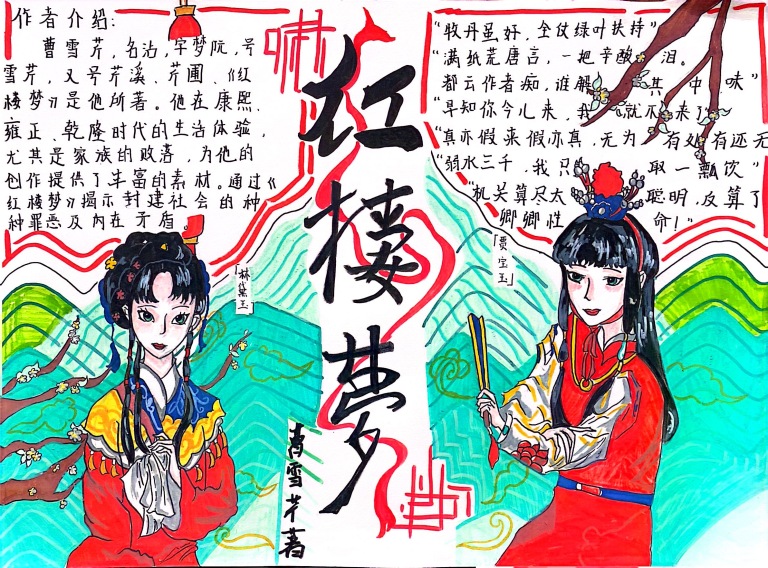 作者介绍：
曹雪芹，名沾，字梦阮，号
雪芹，又号芹溪、芹圃、《红
楼梦》是他所著。他在康熙、
雍正、乾隆时代的生活体验，
尤其是家族的败落，为他的
创作提供了丰富的素材。通过《
红楼梦》揭示封建社会的种
种罪恶及内在矛盾。
「林黛玉」
红楼梦
曹雪芹著
“牡丹虽好，全仗绿叶扶持”
“满纸荒唐言，一把辛酸泪。
都云作者痴，谁解其中味”
“早知你今儿来，我就不来了”
“真亦假来假亦真，无为有处有还无
“弱水三千，我只取一瓢饮”
“机关算尽太聪明，反算了
卿卿性命！”
「贾宝玉」